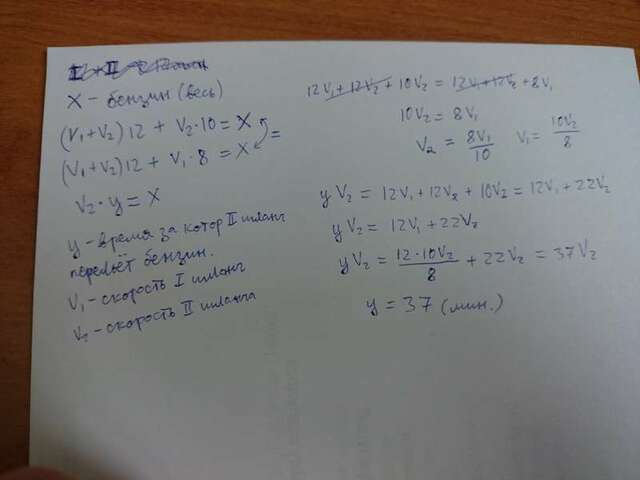 X – бензин (весь)
(V₁+V₂)12 + V₂·10 = X
(V₁+V₂)12 + V₁·8 = X
=
V₂·y = X
y – время за котор II шланг
перельёт бензин.
V₁ – скорость I шланг
V₂ – скорость II шланга
12V₁ + 12V₂ + 10V₂ = 12V₁ + 12V₂ + 8V₁
10V₂ = 8V₁
V₂ = 8V₁/10 V₁ = 10V₂/8
yV₂ = 12V₁ + 12V₂ + 10V₂ = 12V₁ + 22V₂
yV₂ = 12V₁ + 22V₂
yV₂ = 12·10V₂/8 + 22V₂ = 37V₂
y = 37 (мин.)